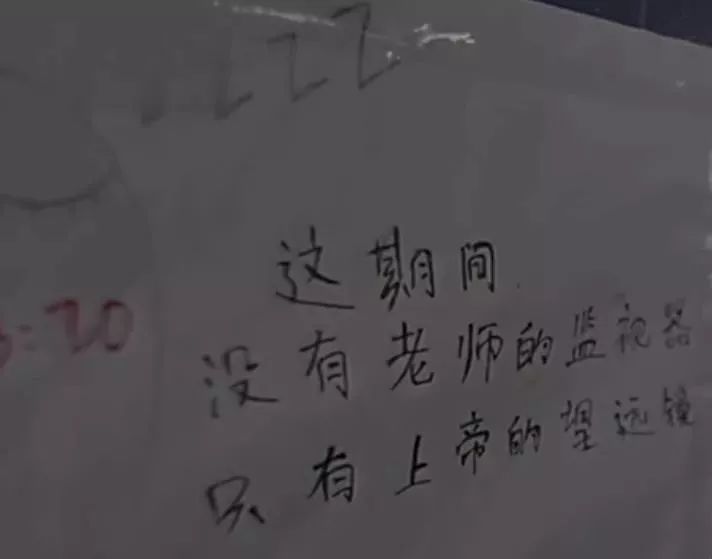 ZZZZ
这期间
:20
没有老师的监视器
只有上帝的望远镜